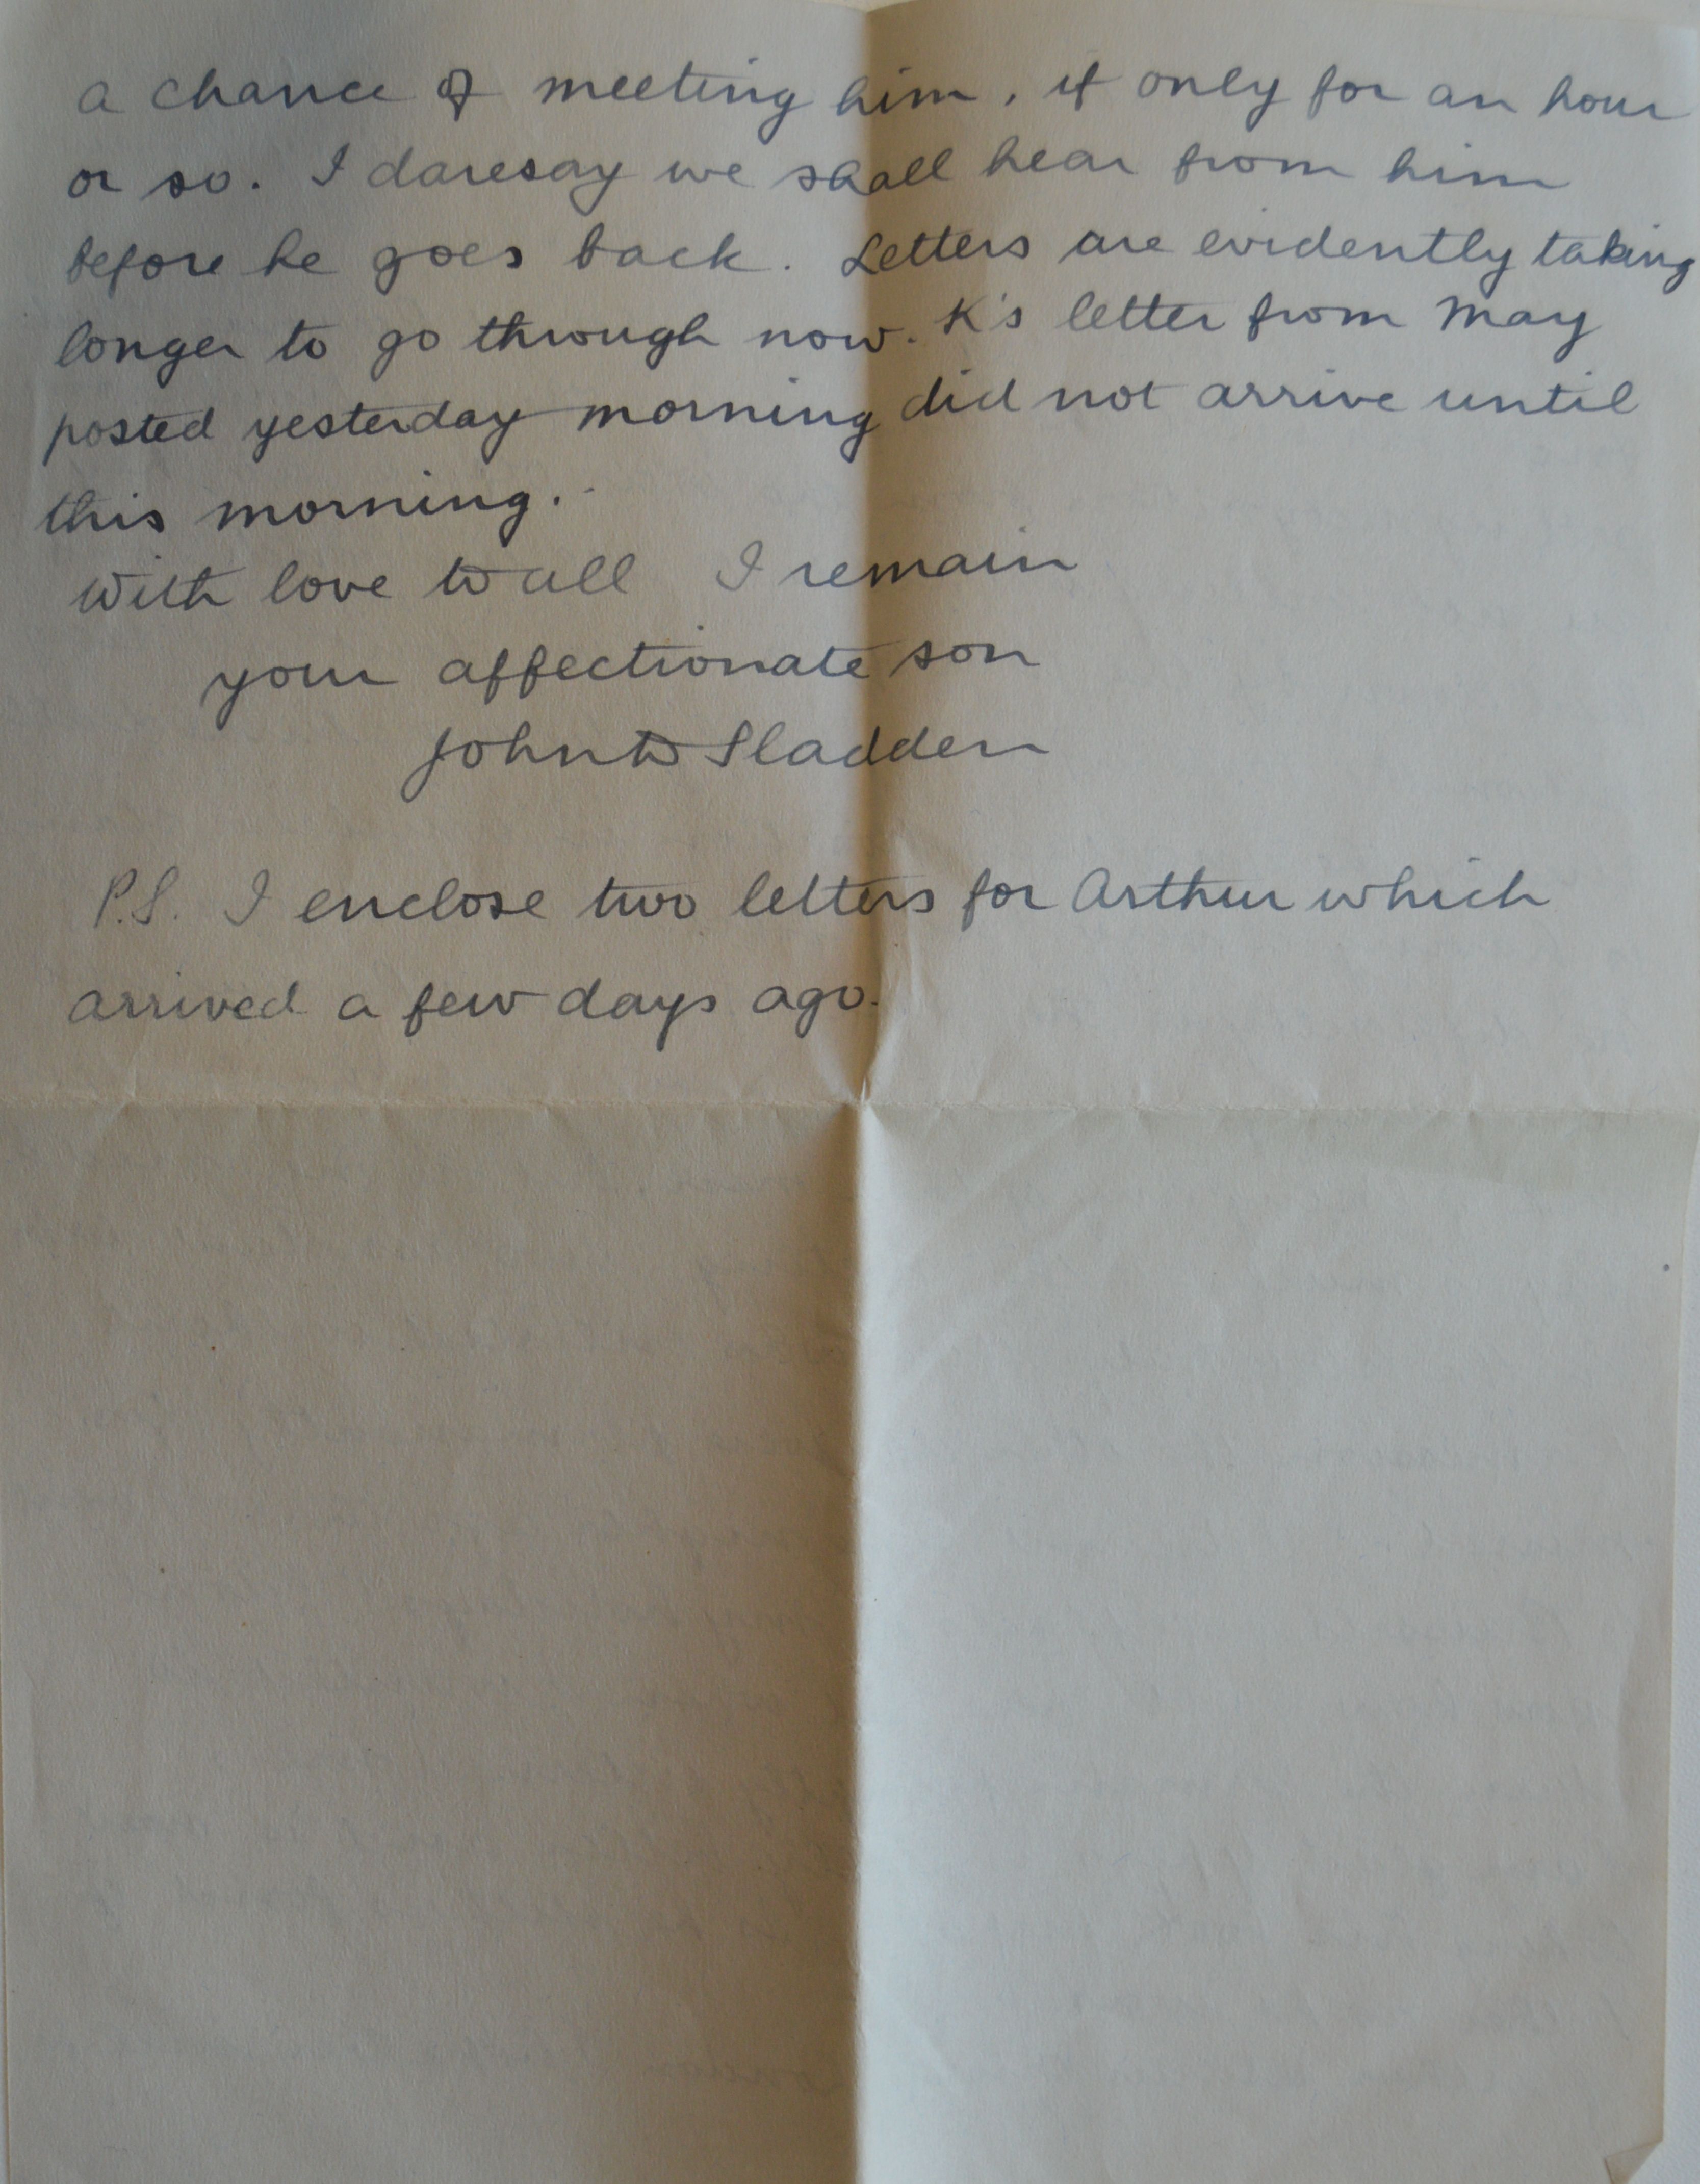 a chance of meeting him, if only for an hour
or so. I daresay we shall hear from him
before he goes back. Letters are evidently taking
longer to go through now. K's letter from May
posted yesterday morning did not arrive until
this morning.
With love to all I remain
your affectionate son
John D Sladden
P.S. I enclose two letters for Arthur which
arrived a few days ago.